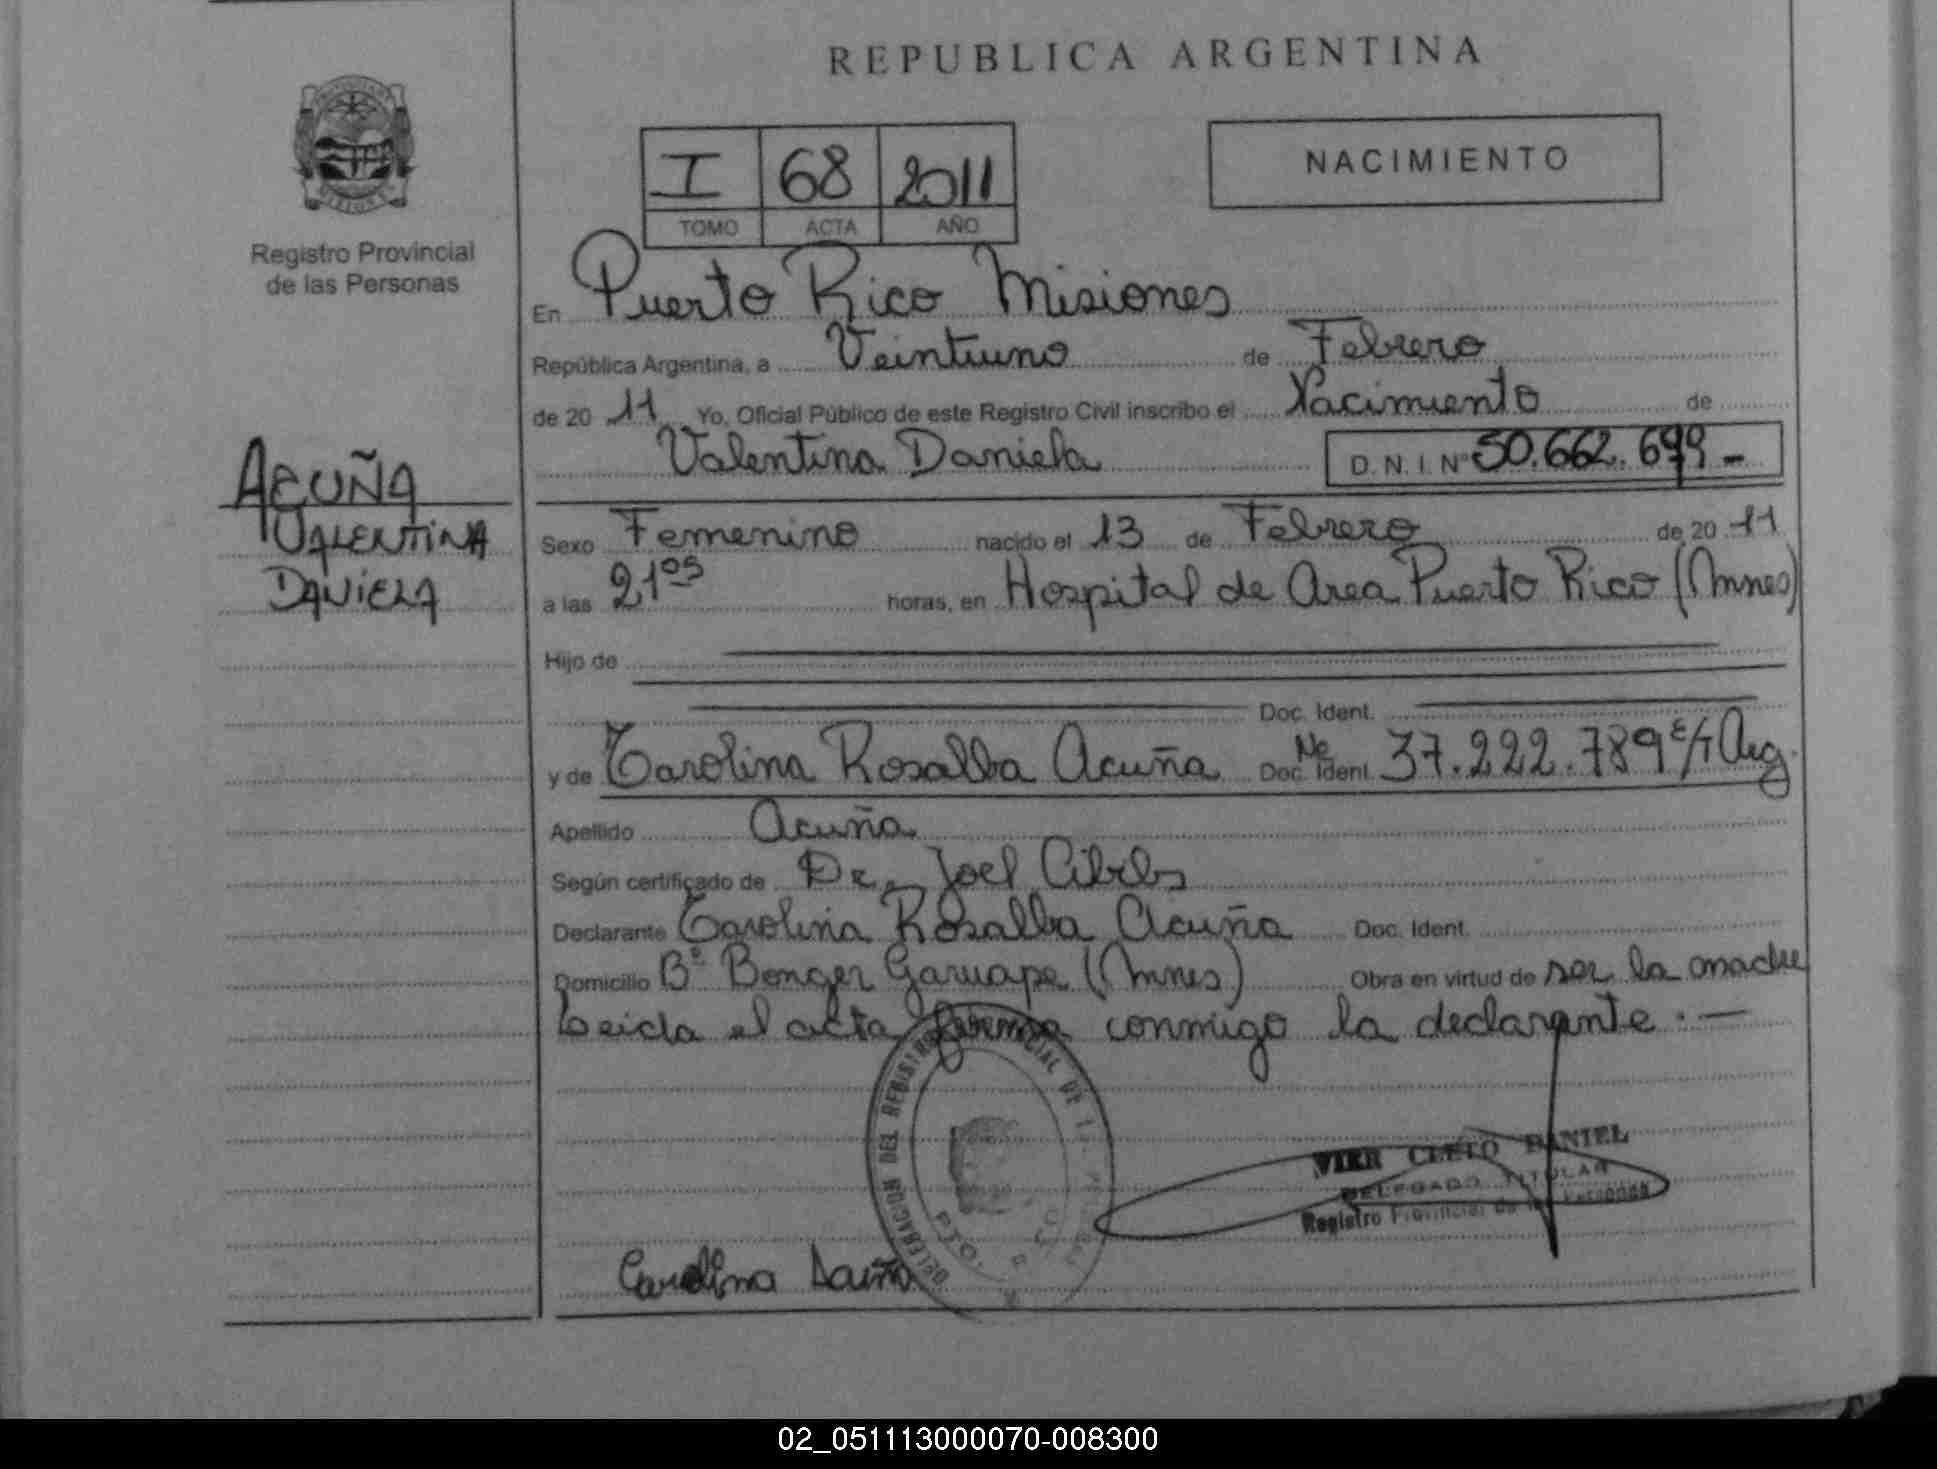 REPUBLICA ARGENTINA
I 68 2011
TOMO ACTA AÑO
NACIMIENTO
Registro Provincial
de las Personas
ACUÑA
VALENTINA
DANIELA
En Puerto Rico Misiones
República Argentina, a Veintiuno de Febrero
de 20 11 Yo, Oficial Público de este Registro Civil inscribo el Nacimiento de
Valentina Daniela D.N.I. Nº 50.662.699-
Sexo Femenino nacido el 13 de Febrero de 20 11
a las 21 05 horas, en Hospital de Area Puerto Rico (Mnes)
Hijo de
Doc. Ident.
y de Carolina Rosalba Acuña Doc. Ident. Nº 37.222.789 Arg.
Apellido Acuña
Según certificado de Dr. Joel
Declarante Carolina Rosalba Acuña Doc. Ident.
Domicilio Bº Bonger Garuape (Mnes) Obra en virtud de ser la madre
Leida el acta firma conmigo la declarante.—
DELEGACION DEL REGISTRO PROVINCIAL DE
VIER CLETO DANIEL
DELEGADO TITULAR
Registro Provincial de las Personas
Carolina Acuña
02_051113000070-008300